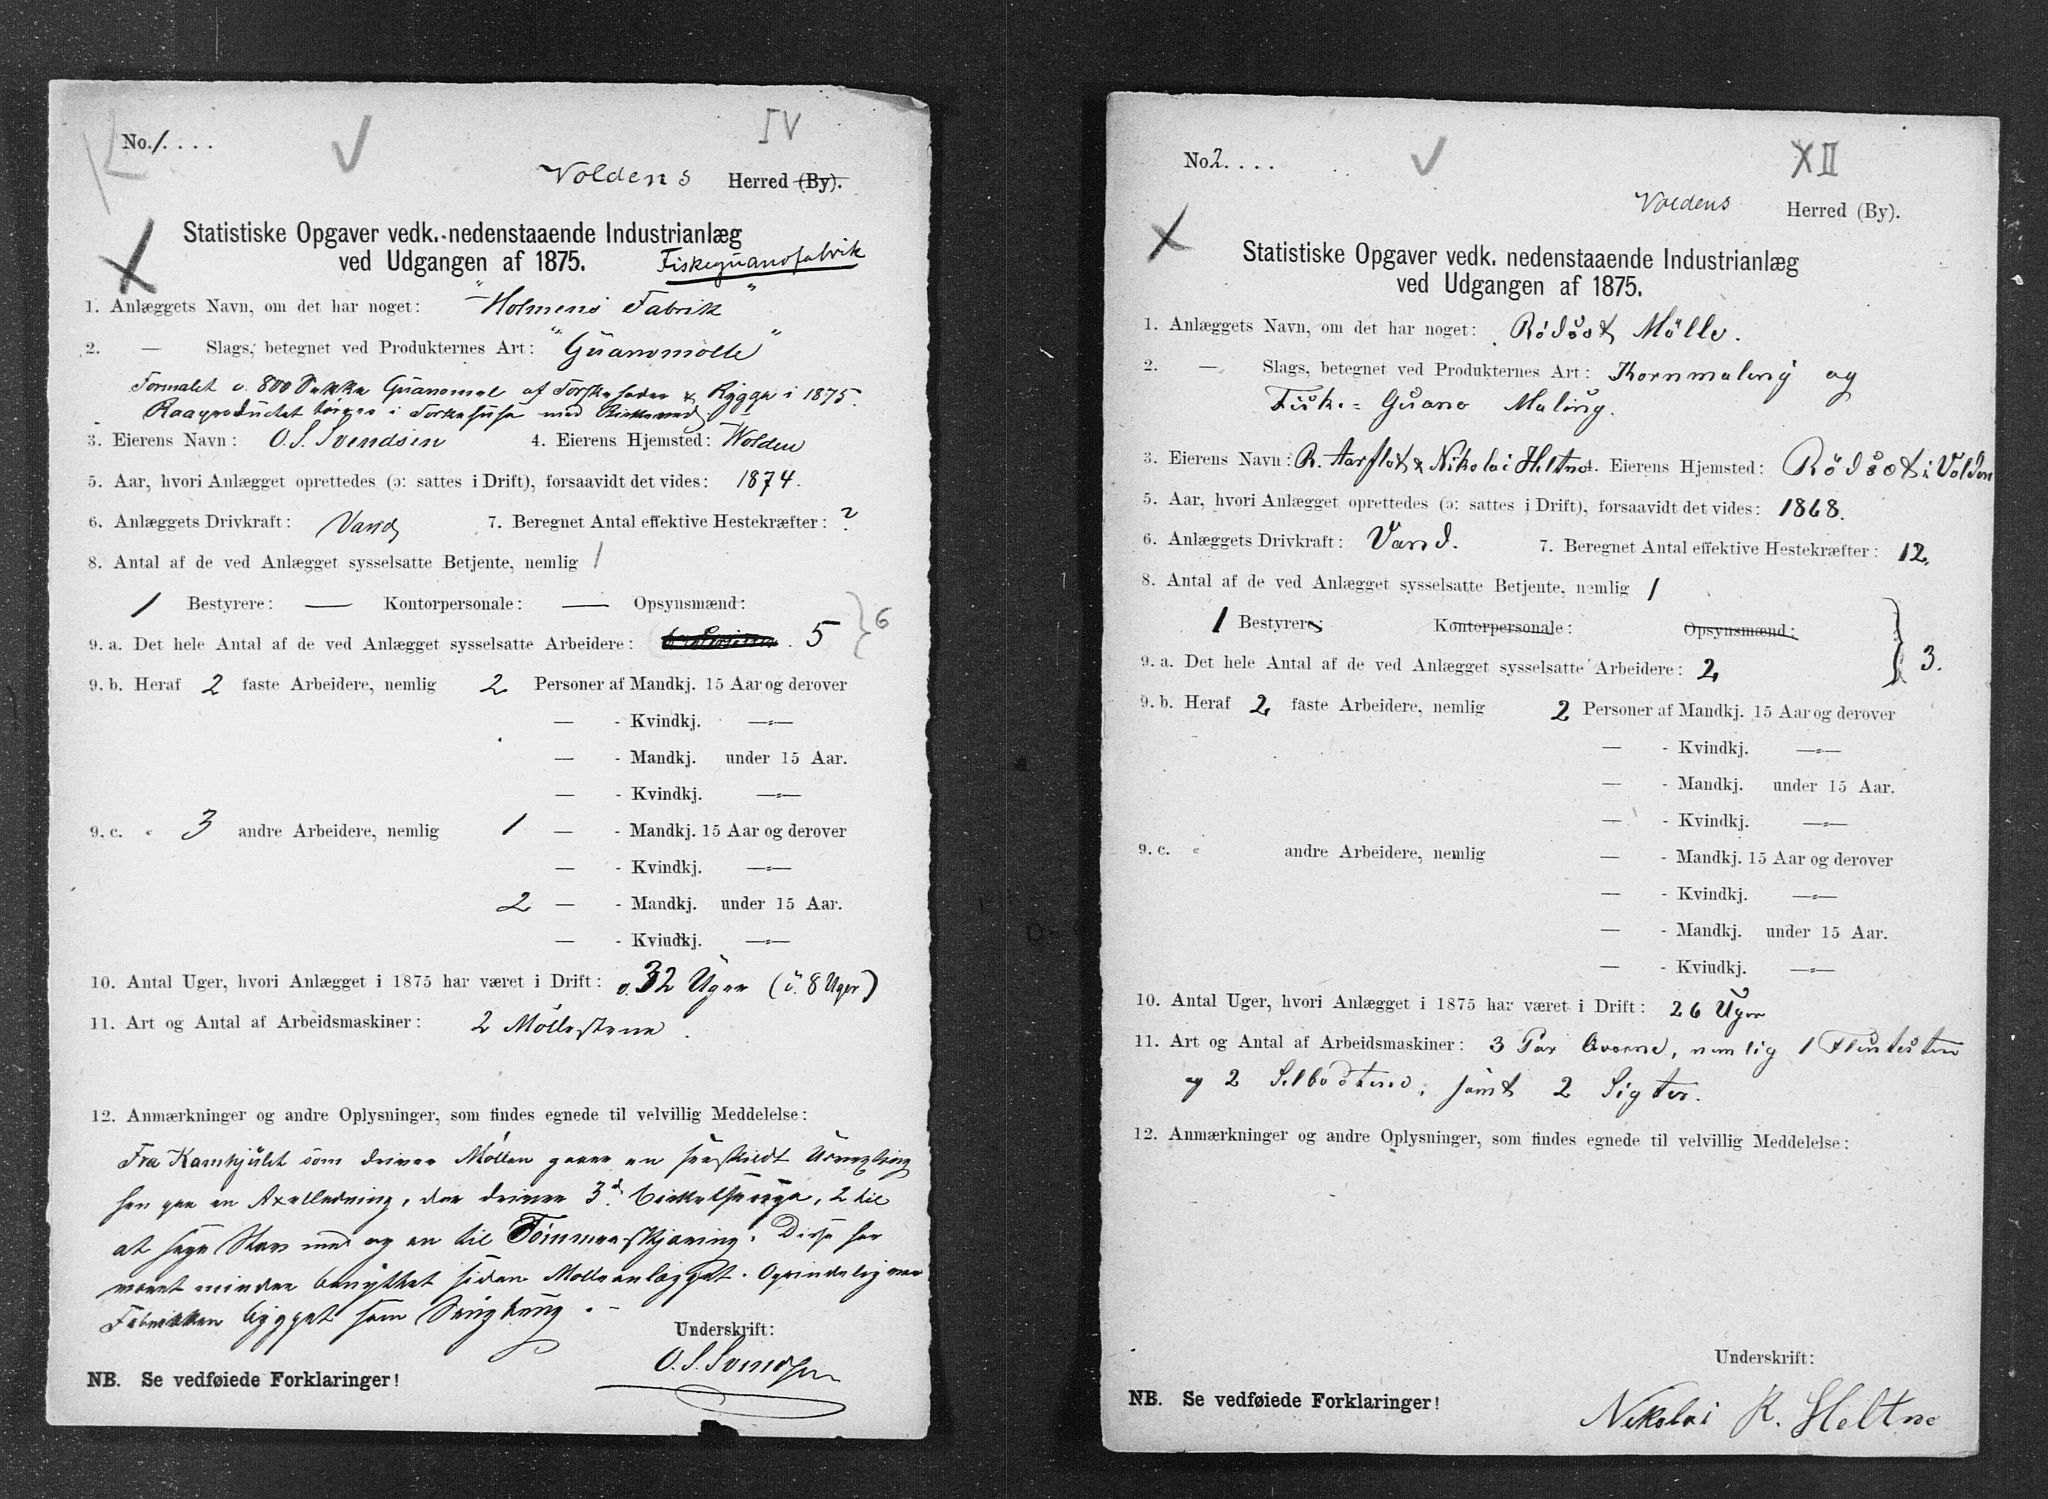 No. 1. . . .
IV
Voldens Herred (By).
Statistiske Opgaver vedk. nedenstaaende Industrianlæg
ved Udgangen af 1875.
Fiskeguanofabrik
1. Anlæggets Navn, om det har noget: "Holmens Fabrik"
2. — Slags, betegnet ved Produkternes Art: "Guanomølle"
Formalet c. 800 Sække Guanomel af Torskehoder & Rygge i 1875.
Raaproductet tørres i Tørkehuse med Birkeved
3. Eierens Navn: O. S. Svendsen 4. Eierens Hjemsted: Volden
5. Aar, hvori Anlægget oprettedes (ɔ: sattes i Drift), forsaavidt det vides: 1874.
6. Anlæggets Drivkraft: Vand 7. Beregnet Antal effektive Hestekræfter: ?
8. Antal af de ved Anlægget sysselsatte Betjente, nemlig 1
1 Bestyrere: — Kontorpersonale: — Opsynsmænd:
9. a. Det hele Antal af de ved Anlægget sysselsatte Arbeidere: 5 } 6
9. b. Heraf 2 faste Arbeidere, nemlig 2 Personer af Mandkj. 15 Aar og derover
— - Kvindkj. —"—
— - Mandkj. under 15 Aar.
— - Kvindkj. —"—
9. c. " 3 andre Arbeidere, nemlig 1 — - Mandkj. 15 Aar og derover
— - Kvindkj. —"—
2 — - Mandkj. under 15 Aar.
— - Kviudkj. —"—
10. Antal Uger, hvori Anlægget i 1875 har været i Drift: c. 32 Uger (à 8 Uger)
11. Art og Antal af Arbeidsmaskiner: 2 Møllestene.
12. Anmærkninger og andre Oplysninger, som findes egnede til velvillig Meddelelse:
Fra Kamhjulet som driver Møllen gaaer en særskildt
en Axelledning, der driver 3 Cirkelsauge, 2 til
at sage Stav med og en til Tømmerskjæring. Disse har
været mindre benyttet siden Mølleanlægget. Oprindelig var
Fabrikken bygget som
Underskrift:
O. S. Svendsen
NB. Se vedføiede Forklaringer!
No. 2. . . .
XII
Voldens Herred (By).
Statistiske Opgaver vedk. nedenstaaende Industrianlæg
ved Udgangen af 1875.
1. Anlæggets Navn, om det har noget: Rødsæt Mølle.
2. — Slags, betegnet ved Produkternes Art: Kornmaling og
Fiske-Guano Maling.
3. Eierens Navn: R. Aarflot & Nikolai Heltne 4. Eierens Hjemsted: Rødsæt i Volden
5. Aar, hvori Anlægget oprettedes (ɔ: sattes i Drift), forsaavidt det vides: 1868.
6. Anlæggets Drivkraft: Vand. 7. Beregnet Antal effektive Hestekræfter: 12.
8. Antal af de ved Anlægget sysselsatte Betjente, nemlig 1
1 Bestyrere Kontorpersonale: Opsynsmænd:
9. a. Det hele Antal af de ved Anlægget sysselsatte Arbeidere: 2 } 3.
9. b. Heraf 2 faste Arbeidere, nemlig 2 Personer af Mandkj. 15 Aar og derover
— - Kvindkj. —"—
— - Mandkj. under 15 Aar.
— - Kvindkj. —"—
9. c. " andre Arbeidere, nemlig — - Mandkj. 15 Aar og derover
— - Kvindkj. —"—
— - Mandkj. under 15 Aar.
— - Kviudkj. —"—
10. Antal Uger, hvori Anlægget i 1875 har været i Drift: 26 Uger
11. Art og Antal af Arbeidsmaskiner: 3 Par Qværne, nemlig 1 Flintesten
og 2 Selbostene, samt 2 Sigter.
12. Anmærkninger og andre Oplysninger, som findes egnede til velvillig Meddelelse:
Underskrift:
Nikolai R. Heltne
NB. Se vedføiede Forklaringer!